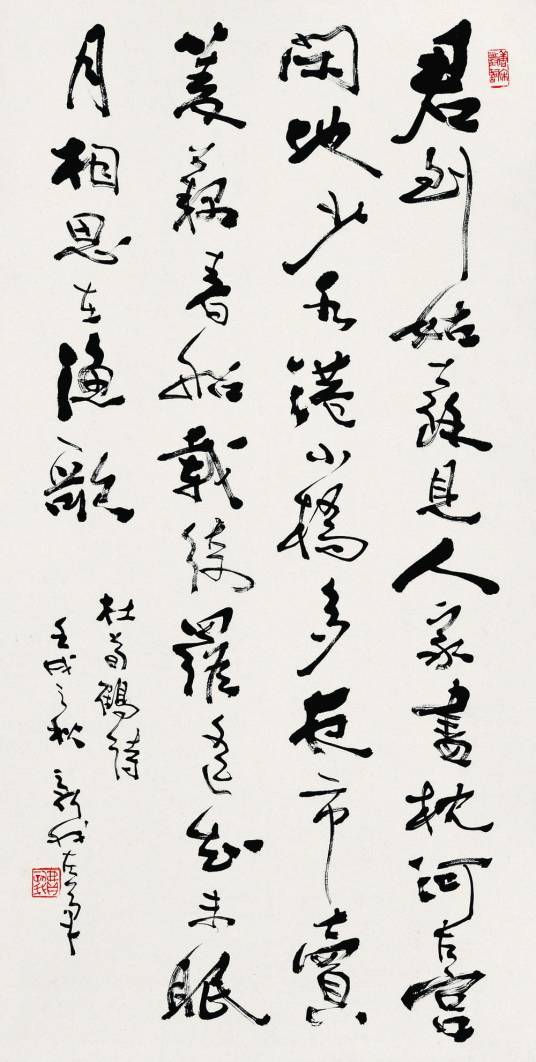 君到姑蘇見人家盡枕河古宮
閑地少水港小橋多夜市賣
菱藕春船載綺羅遙知未眠
月相思在漁歌
杜荀鶴詩
壬戌之秋 新我左筆